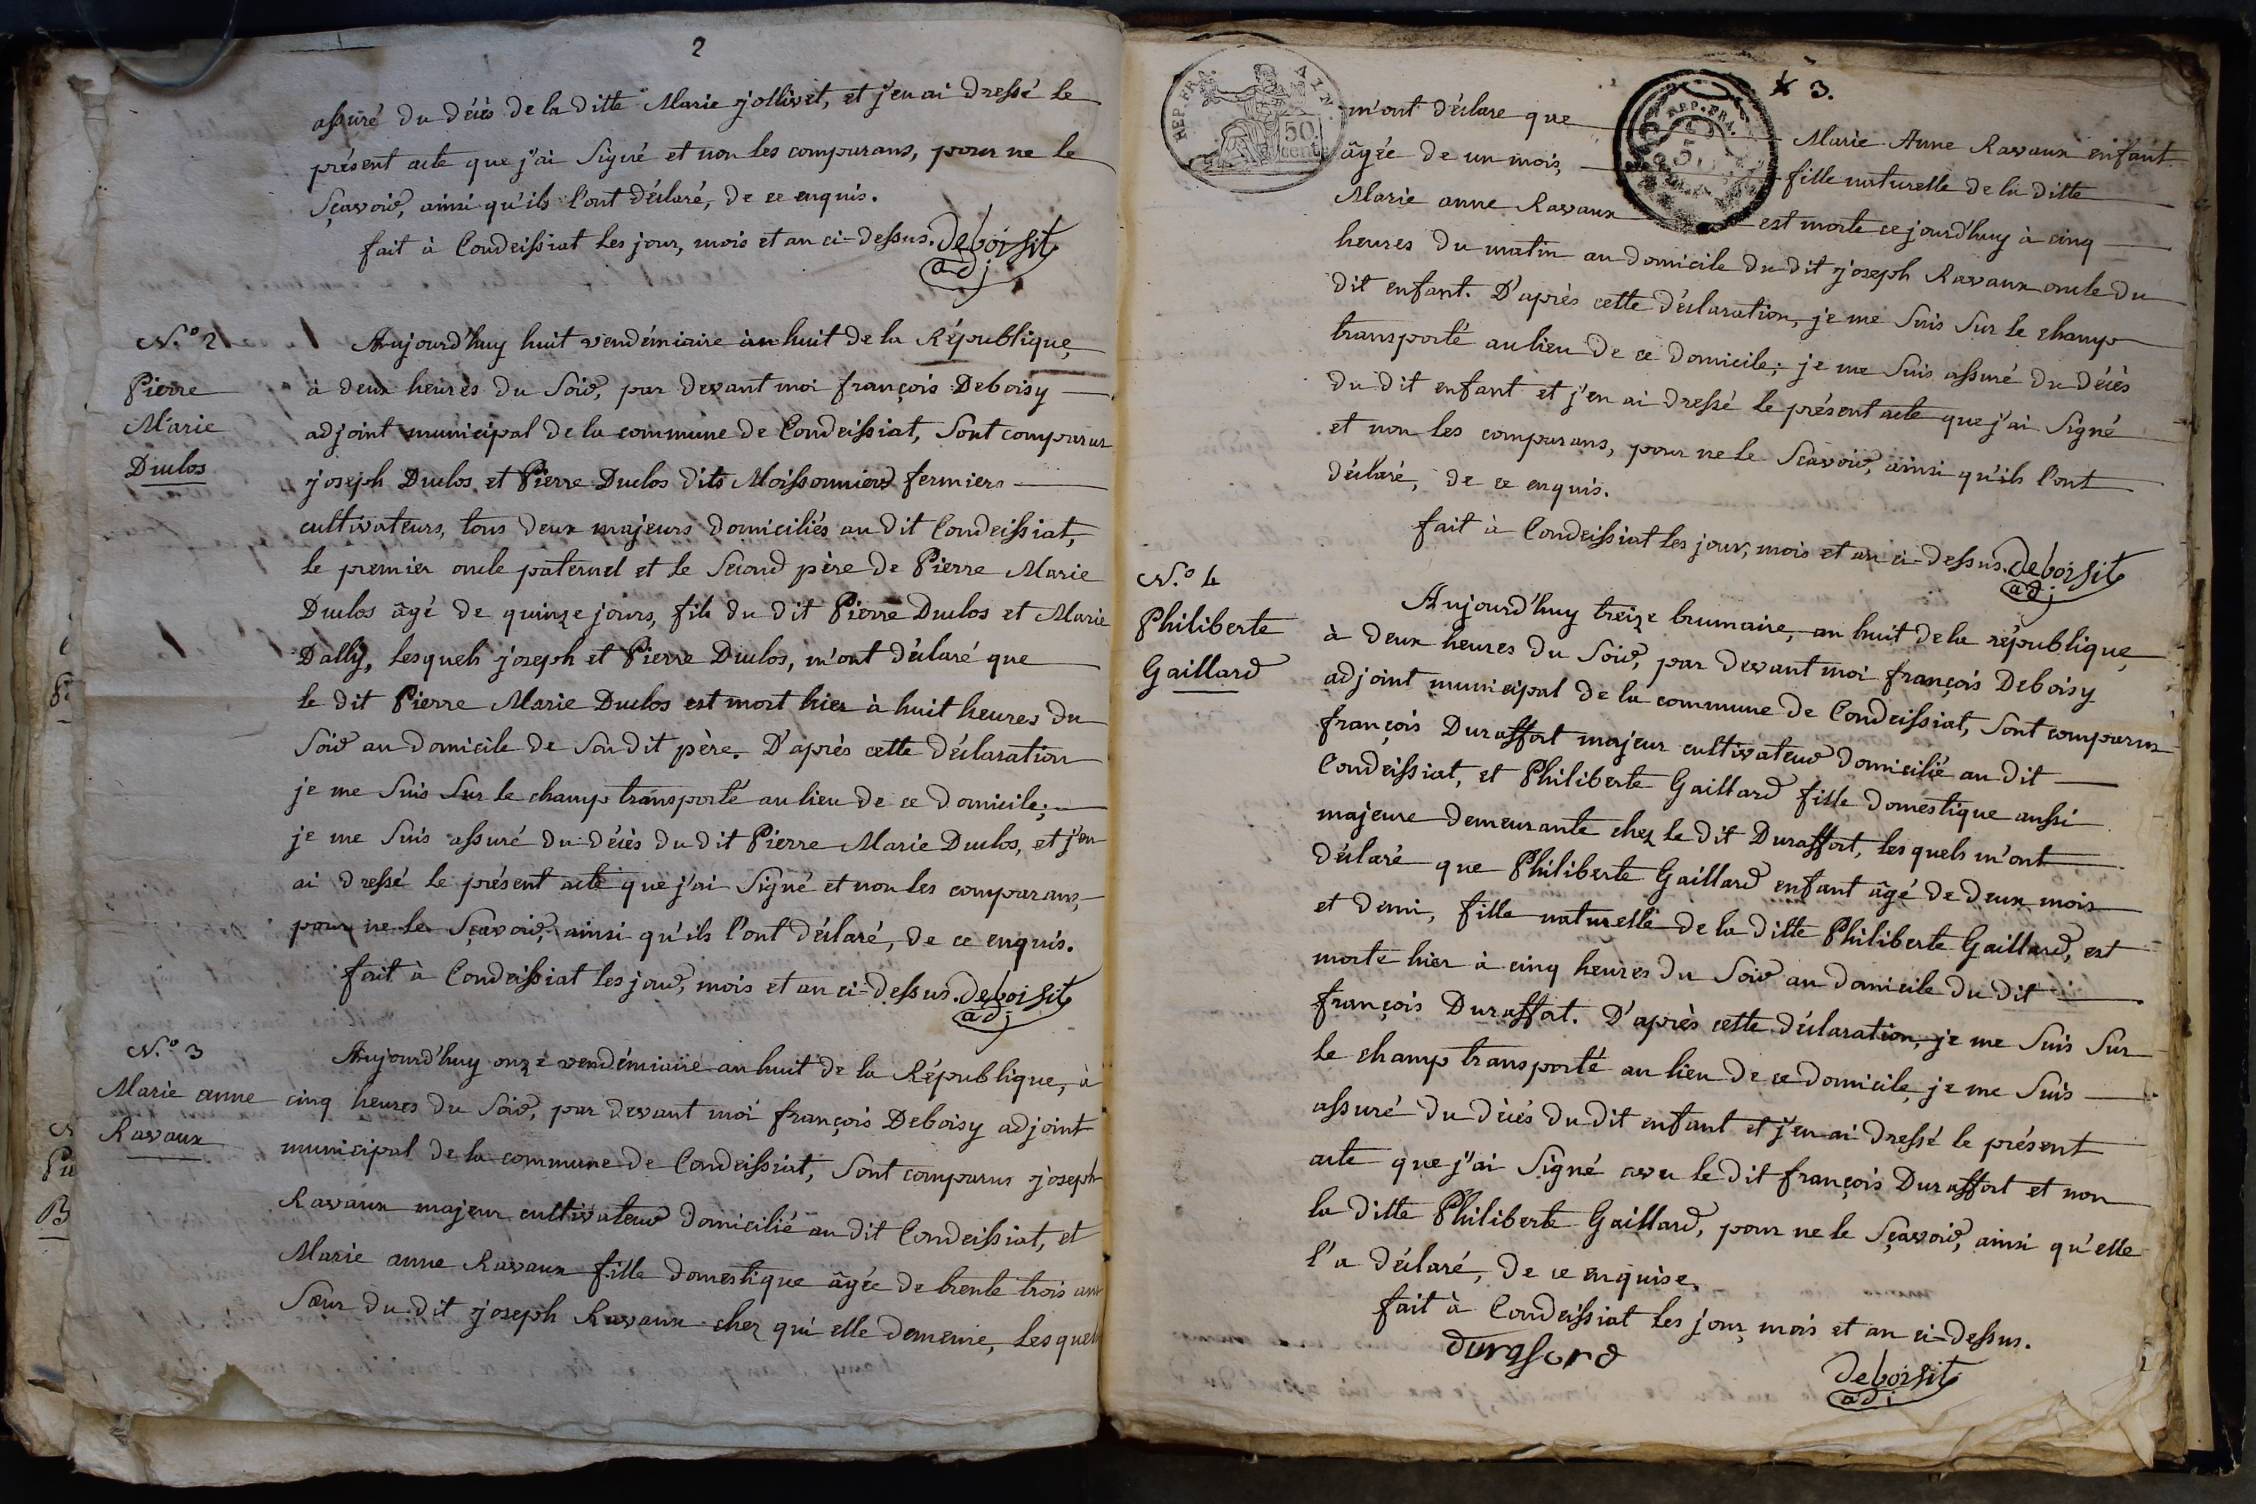 2
assuré du décès de la ditte Marie jollivet, et j'en ai dressé le
présent acte que j'ai Signé et non les comparans, pour ne le
Sçavoir, ainsi qu'ils l'ont déclaré, de ce enquis.
fait à Condeissiat les jour, mois et an ci-dessus. deboisit
adj
N.º 2
Pierre
Marie
Duclos
Aujourd'huy huit vendémiaire an huit de la République,
à deux heures du Soir, par devant moi françois Deboisy
adjoint municipal de la commune de Condeissiat, Sont comparus
joseph Duclos et Pierre Duclos dits Moissonnier fermiers
cultivateurs, tous deux majeurs domiciliés au dit Condeissiat,
le premier oncle paternel et le Second père de Pierre Marie
Duclos âgé de quinze jours, fils du dit Pierre Duclos et Marie
Dally, lesquels joseph et Pierre Duclos, m'ont déclaré que
le dit Pierre Marie Duclos est mort hier à huit heures du
Soir au domicile de Son dit père. D'après cette déclaration
je me Suis Sur le champ transporté au lieu de ce domicile;
je me Suis assuré du décès du dit Pierre Marie Duclos, et j'en
ai dressé le présent acte que j'ai Signé et non les comparans,
pour ne le Sçavoir, ainsi qu'ils l'ont déclaré, de ce enquis.
fait à Condeissiat les jour, mois et an ci-dessus. deboisit
adj
N.º 3
Marie anne
Ravaux
Aujourd'huy onze vendémiaire an huit de la République, à
cinq heures du Soir, par devant moi françois Deboisy adjoint
municipal de la commune de Condeissiat, Sont comparus joseph
Ravaux majeur cultivateur domicilié au dit Condeissiat, et
Marie anne Ravaux fille domestique âgée de trente trois ans
Sœur du dit joseph Ravaux chez qui elle demeure, Lesquels
3.
REP. FRA.
AIN.
50
cent
REP. FRA.
m'ont déclare que Marie Anne Ravaux enfant
âgée de un mois, fille naturelle de la ditte
Marie anne Ravaux est morte ce jourd'huy à cinq
heures du matin au domicile du dit joseph Ravaux oncle du
dit enfant. D'après cette déclaration, je me Suis Sur le champ
transporté au lieu de ce domicile; je me Suis assuré du décès
du dit enfant et j'en ai dressé le présent acte que j'ai Signé
et non les comparans, pour ne le Sçavoir, ainsi qu'ils l'ont
déclaré, de ce enquis.
fait à Condeissiat les jour, mois et an ci-dessus. deboisit
adj
N.º 4
Philiberte
Gaillard
Aujourd'huy treize brumaire, an huit de la république,
à deux heures du Soir, par devant moi françois Deboisy
adjoint municipal de la commune de Condeissiat, Sont comparus
françois Duraffort majeur cultivateur domicilié au dit
Condeissiat, et Philiberte Gaillard fille domestique aussi
majeure demeurante chez le dit Duraffort, lesquels m'ont
déclaré que Philiberte Gaillard enfant âgé de deux mois
et demi, fille naturelle de la ditte Philiberte Gaillard, est
morte hier à cinq heures du Soir au domicile du dit
françois Duraffort. D'après cette déclaration, je me Suis Sur
le champ transporté au lieu de ce domicile, je me Suis
assuré du décés du dit enfant et j'en ai dressé le présent
acte que j'ai Signé avec le dit françois Duraffort et non
la ditte Philiberte Gaillard, pour ne le Sçavoir, ainsi qu'elle
l'a déclaré, de ce enquise.
fait à Condeissiat les jour, mois et an ci-dessus.
Duraford
deboisit
adj